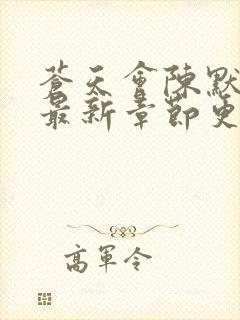 蒼天會陳默
最新章節更
高軍令